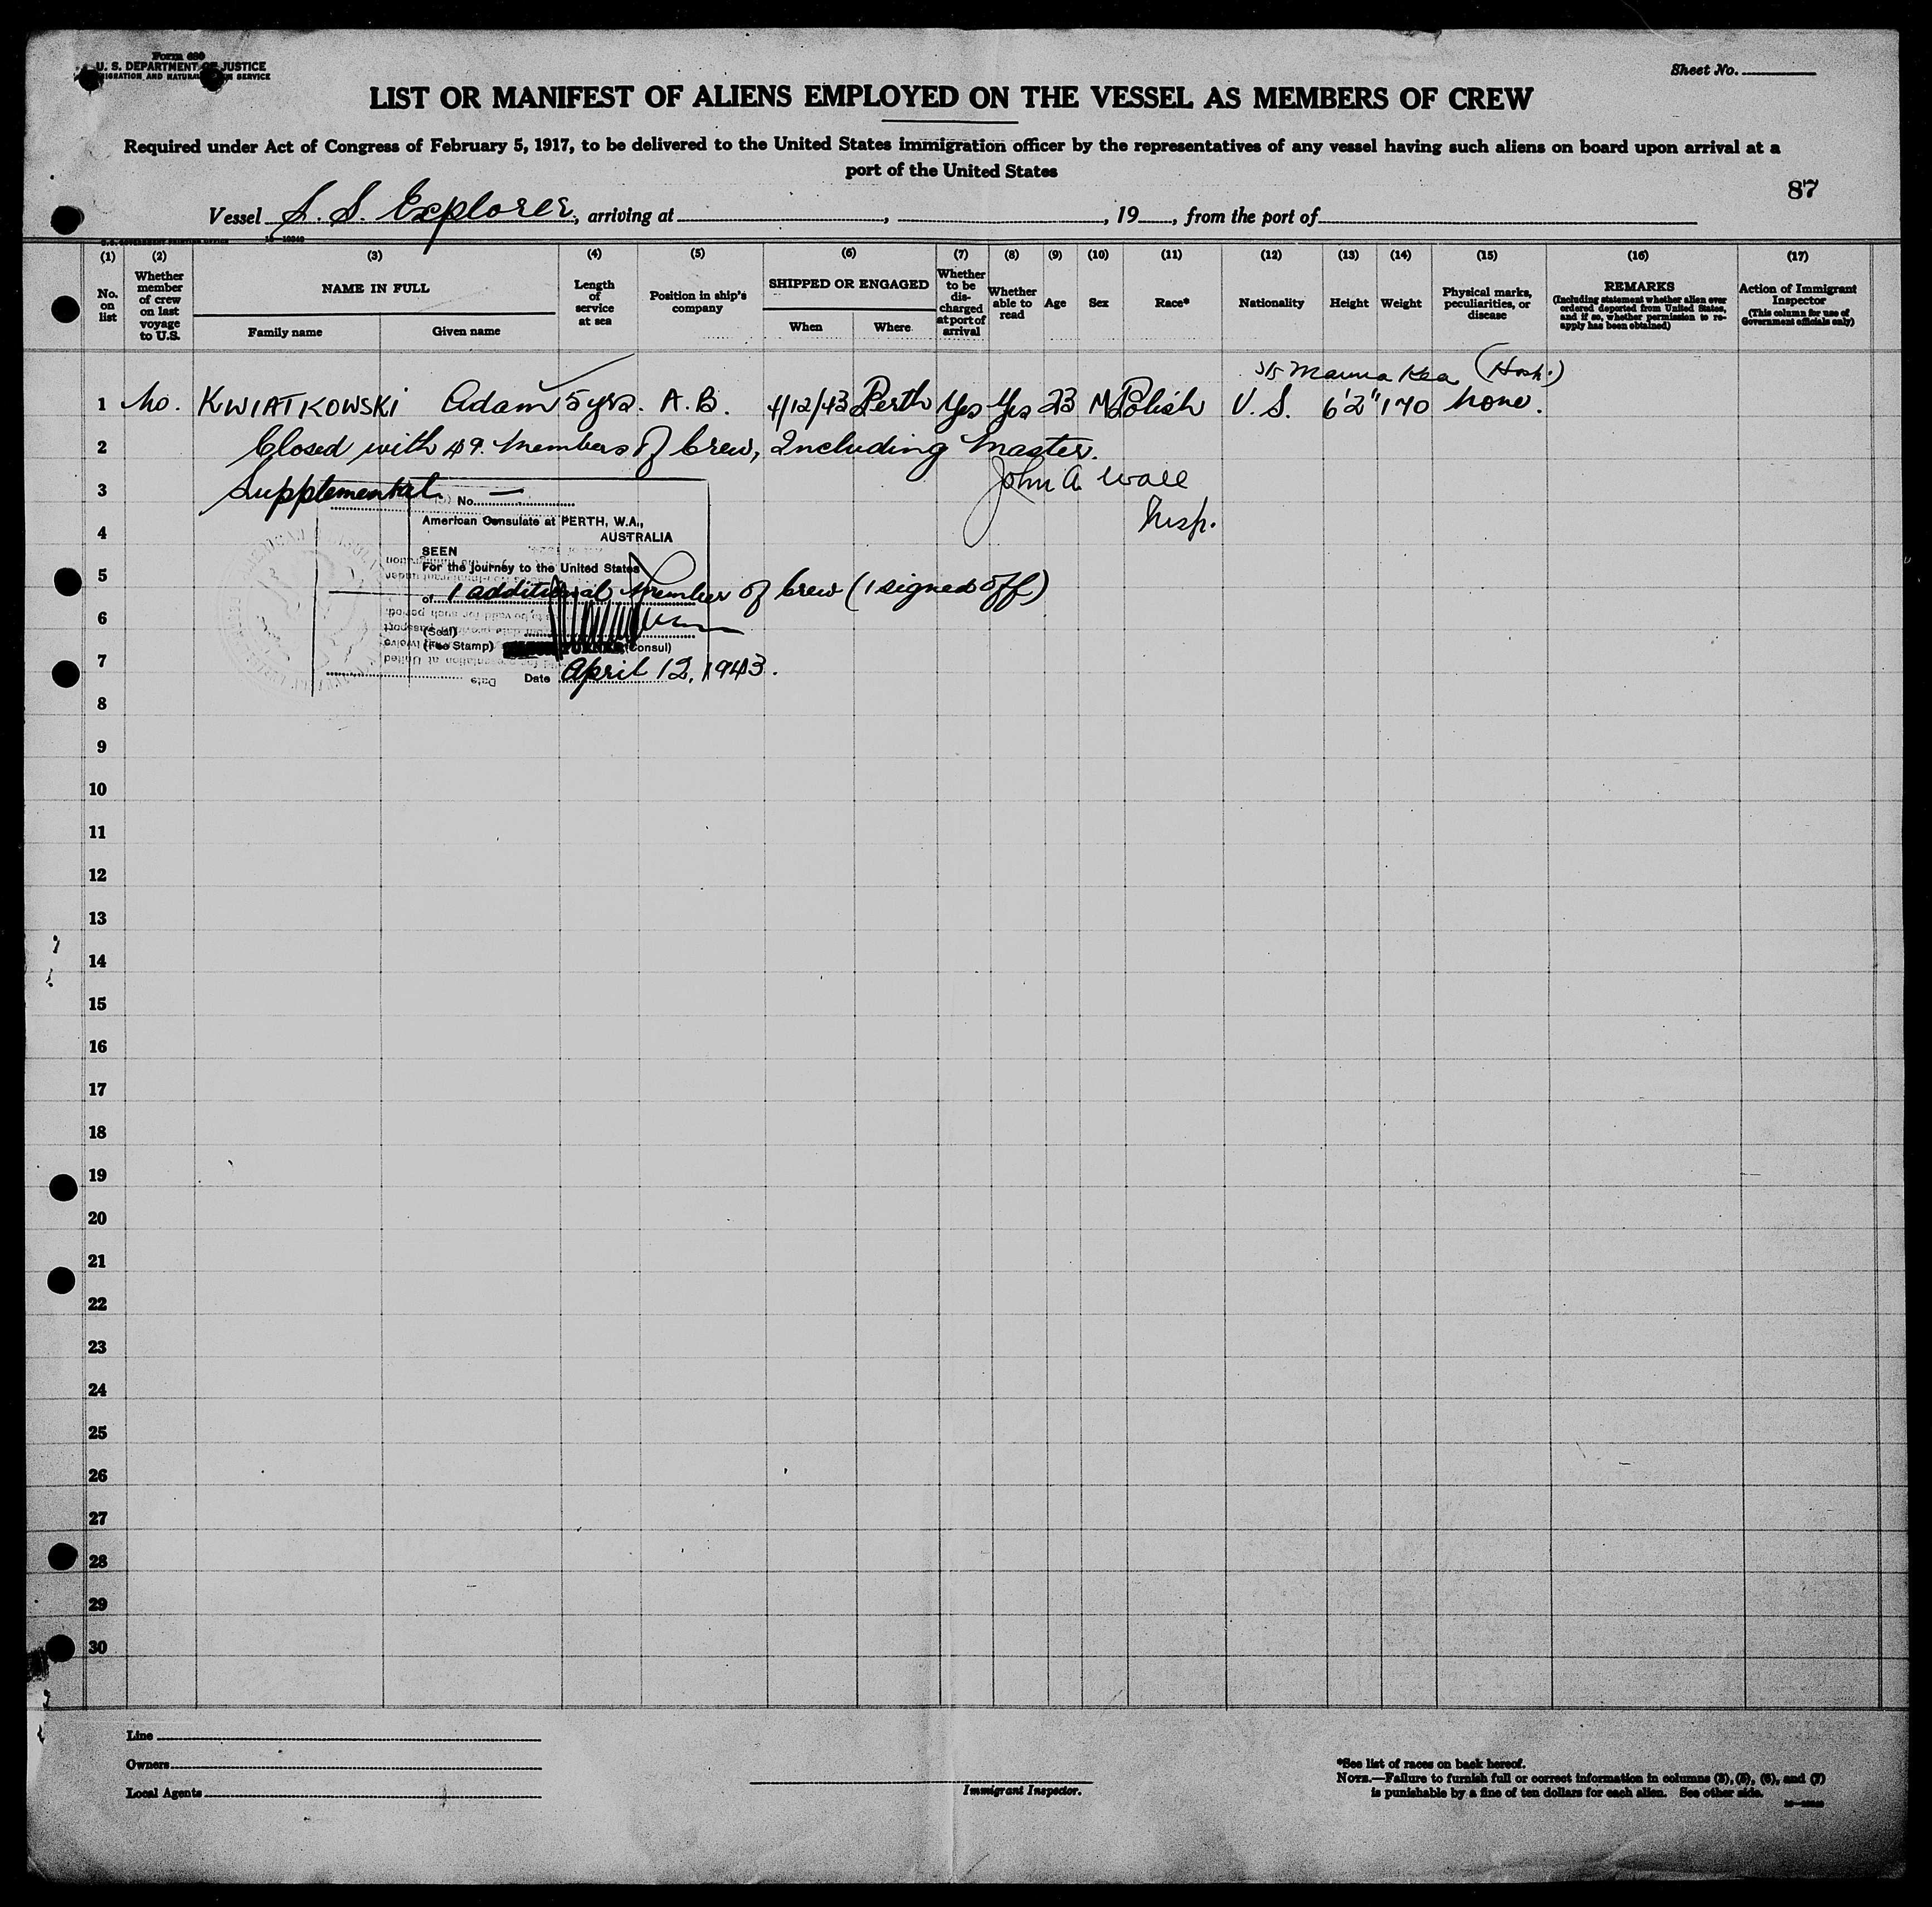 Form 680
U. S. DEPARTMENT OF JUSTICE
IMMIGRATION AND NATURALIZATION SERVICE
Sheet No.
LIST OR MANIFEST OF ALIENS EMPLOYED ON THE VESSEL AS MEMBERS OF CREW
Required under Act of Congress of February 5, 1917, to be delivered to the United States immigration officer by the representatives of any vessel having such aliens on board upon arrival at a
port of the United States
87
Vessel S. S. Explorer, arriving at , , 19 , from the port of
U. S. GOVERNMENT PRINTING OFFICE
(1) (2) (3) (4) (5) (6) (7) (8) (9) (10) (11) (12) (13) (14) (15) (16) (17)
No. on list
Whether member of crew on last voyage to U.S.
NAME IN FULL
Family name
Given name
Length of service at sea
Position in ship's company
SHIPPED OR ENGAGED
When
Where
Whether to be discharged at port of arrival
Whether able to read
Age
Sex
Race*
Nationality
Height
Weight
Physical marks, peculiarities, or disease
REMARKS
(Including statement whether alien ever ordered deported from United States, and if so, whether permission to re-apply has been obtained)
Action of Immigrant Inspector
(This column for use of Government officials only)
Mauna Kea (Hosh.)
1 No. KWIATKOWSKI Adam 5 yrs. A. B. 4/12/43 Perth Yes Yes 23 M Polish U. S. 6'2" 170 None.
2 Closed with 49. Members of Crew, Including Master.
John A. Wall
3 Supplemental No. —
Insp.
American Consulate at PERTH, W.A.,
4 AUSTRALIA
SEEN
For the journey to the United States
5
of 1 additional Member of Crew (1 signed off)
6
(Seal)
(Fee Stamp) (Consul)
7
Date April 12, 1943.
8
9
10
11
12
13
14
15
16
17
18
19
20
21
22
23
24
25
26
27
28
29
30
Line
Owners
Local Agents
Immigrant Inspector.
*See list of races on back hereof.
NOTE.—Failure to furnish full or correct information in columns (3), (5), (6), and (7)
is punishable by a fine of ten dollars for each alien. See other side.